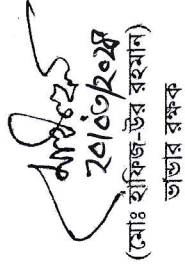 ২০/০৩/২০২৪
(মোঃ হাফিজ-উর রহমান)
ভান্ডার রক্ষক